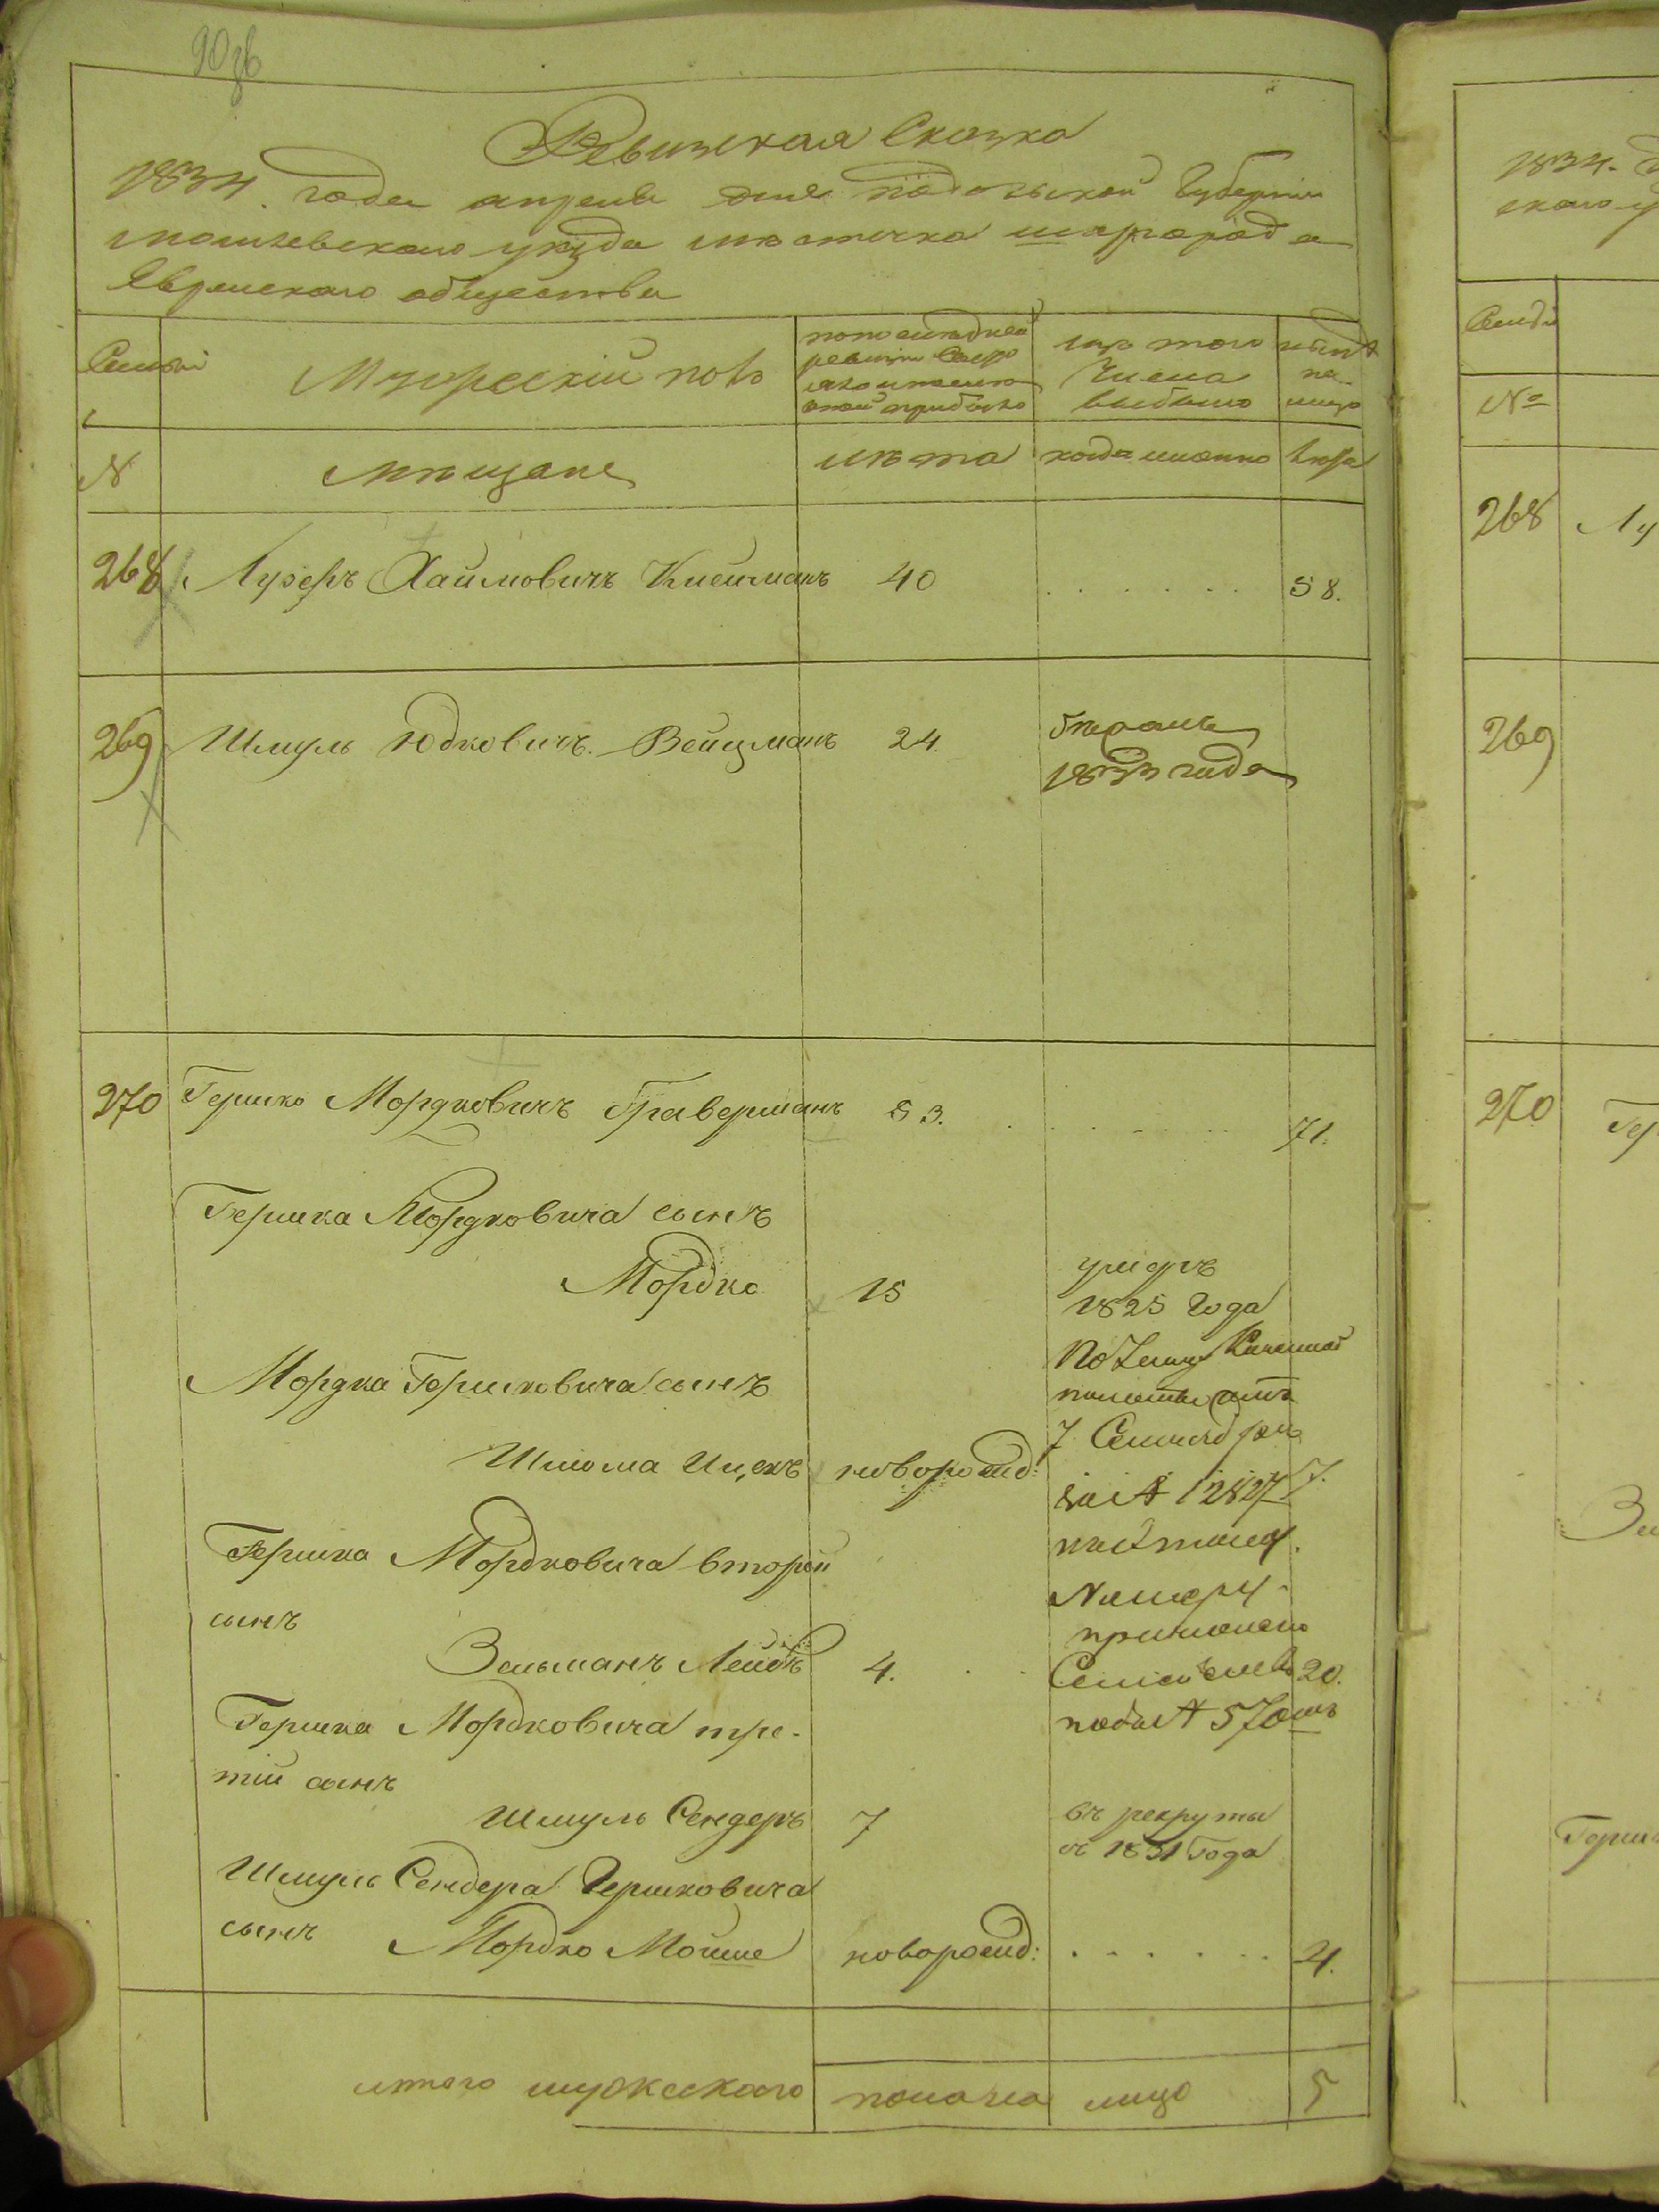 Ревизская Сказка
1834. года апреля дня подольской Губернии
могилевского уезда местечка шаргорода
Еврейского общества
Семьи
Мужеский полъ
по последней
ревизии
изъ того
Числа
выбыло
ныне
на
лицо
N
мещане
лета
когда именно
лета
268 Лузеръ Хаимовичъ Клейманъ 40 . . . . . . 58.
269 Шмуль Юдковичъ Вейцманъ 24
1833 года
270 Гершко Мордковичъ Граверманъ 53. . . . . . 71.
Гершка Мордковича сынъ
Мордко 15
умеръ
1825 Года
Мордка Гершковича сынъ
Шлома Ицекъ новорожд: 7.
По Казенной
палаты отъ
7
12827
Гершка Мордковича второй
сынъ
Зельманъ Лейбъ 4. 20.
причислено
подъ № 570
Гершка Мордковича тре-
тий сынъ
Шмуль Сендеръ 7
въ рекруты
въ 1831 Года
Шмуль Сендера Гершковича
сынъ Мордко Мошке новорожд: . . . . . . 4.
итого мужескаго пола на лицо 5
1834.
Семьи
№
268 Лу
269
270 Гер
Зе
Герш